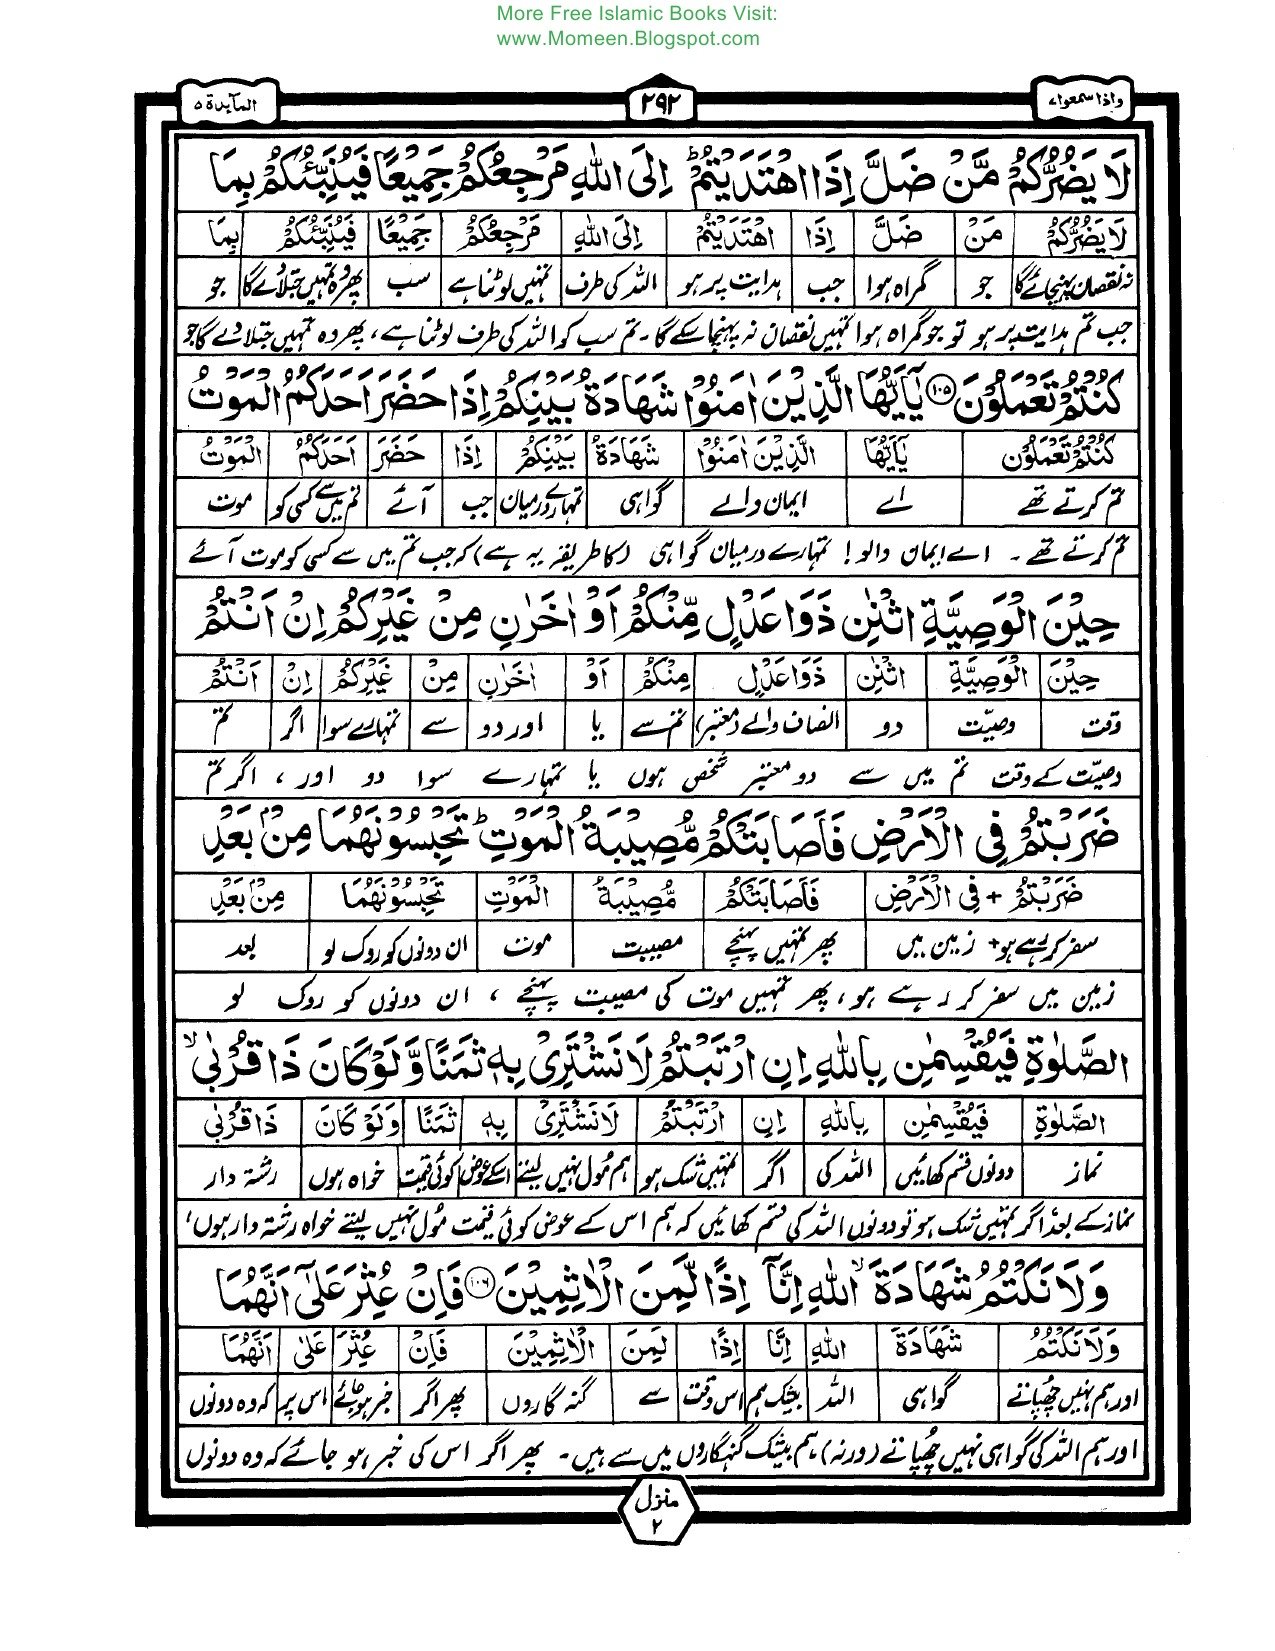 More Free Islamic Books Visit:
www.Momeen.Blogspot.com
واذا سمعوا۷ ۲۹۲ المآئدة ۵
لَا يَضُرُّكُمْ مَّنْ ضَلَّ اِذَا اهْتَدَيْتُمْ ؕ اِلَى اللّٰهِ مَرْجِعُكُمْ جَمِيْعًا فَيُنَبِّئُكُمْ بِمَا
لَا يَضُرُّكُمْ مَنْ ضَلَّ اِذَا اهْتَدَيْتُمْ اِلَى اللّٰهِ مَرْجِعُكُمْ جَمِيْعًا فَيُنَبِّئُكُمْ بِمَا
نہ نقصان پہنچائے گا جو گمراہ ہوا جب ہدایت پر ہو اللہ کی طرف تمہیں لوٹنا ہے سب پھر وہ تمہیں جتلائے گا جو
جب تم ہدایت پر ہو تو جو گمراہ ہوا تمہیں نقصان نہ پہنچا سکے گا ۔ تم سب کو اللہ کی طرف لوٹنا ہے، پھر وہ تمہیں جتلا دے گا جو
كُنْتُمْ تَعْمَلُوْنَ ۱۰۵ يٰۤاَيُّهَا الَّذِيْنَ اٰمَنُوْا شَهَادَةُ بَيْنِكُمْ اِذَا حَضَرَ اَحَدَكُمُ الْمَوْتُ
كُنْتُمْ تَعْمَلُوْنَ يٰۤاَيُّهَا الَّذِيْنَ اٰمَنُوْا شَهَادَةُ بَيْنِكُمْ اِذَا حَضَرَ اَحَدَكُمُ الْمَوْتُ
تم کرتے تھے اے ایمان والے گواہی تمہارے درمیان جب آئے تم میں سے کسی کو موت
تم کرتے تھے ۔ اے ایمان والو! تمہارے درمیان گواہی (کا طریقہ یہ ہے) کہ جب تم میں سے کسی کو موت آئے
حِيْنَ الْوَصِيَّةِ اثْنٰنِ ذَوَا عَدْلٍ مِّنْكُمْ اَوْ اٰخَرٰنِ مِنْ غَيْرِكُمْ اِنْ اَنْتُمْ
حِيْنَ الْوَصِيَّةِ اثْنٰنِ ذَوَا عَدْلٍ مِنْكُمْ اَوْ اٰخَرٰنِ مِنْ غَيْرِكُمْ اِنْ اَنْتُمْ
وقت وصیّت دو انصاف والے (معتبر) تم سے یا اور دو سے تمہارے سوا اگر تم
وصیّت کے وقت تم میں سے دو معتبر شخص ہوں یا تمہارے سوا دو اور ، اگر تم
ضَرَبْتُمْ فِى الْاَرْضِ فَاَصَابَتْكُمْ مُّصِيْبَةُ الْمَوْتِ ؕ تَحْبِسُوْنَهُمَا مِنْۢ بَعْدِ
ضَرَبْتُمْ + فِى الْاَرْضِ فَاَصَابَتْكُمْ مُّصِيْبَةُ الْمَوْتِ تَحْبِسُوْنَهُمَا مِنْۢ بَعْدِ
سفر کر رہے ہو + زمین میں پھر تمہیں پہنچے مصیبت موت ان دونوں کو روک لو بعد
زمین میں سفر کر رہے ہو، پھر تمہیں موت کی مصیبت پہنچے ، ان دونوں کو روک لو
الصَّلٰوةِ فَيُقْسِمٰنِ بِاللّٰهِ اِنِ ارْتَبْتُمْ لَا نَشْتَرِىْ بِهٖ ثَمَنًا وَّلَوْ كَانَ ذَا قُرْبٰى ۙ
الصَّلٰوةِ فَيُقْسِمٰنِ بِاللّٰهِ اِنِ ارْتَبْتُمْ لَا نَشْتَرِىْ بِهٖ ثَمَنًا وَلَوْ كَانَ ذَا قُرْبٰى
نماز دونوں قسم کھائیں اللہ کی اگر تمہیں شک ہو ہم مُول نہیں لیتے اسکے عوض کوئی قیمت خواہ ہوں رشتہ دار
نماز کے بعد، اگر تمہیں شک ہو تو دونوں اللہ کی قسم کھائیں کہ ہم اس کے عوض کوئی قیمت مُول نہیں لیتے خواہ رشتہ دار ہوں،
وَلَا نَكْتُمُ شَهَادَةَ ۙ اللّٰهِ اِنَّاۤ اِذًا لَّمِنَ الْاٰثِمِيْنَ ۱۰۶ فَاِنْ عُثِرَ عَلٰٓى اَنَّهُمَا
وَلَا نَكْتُمُ شَهَادَةَ اللّٰهِ اِنَّا اِذًا لَمِنَ الْاٰثِمِيْنَ فَاِنْ عُثِرَ عَلٰى اَنَّهُمَا
اور ہم نہیں چھپاتے گواہی اللہ بیشک ہم اس وقت سے گنہ گاروں پھر اگر خبر ہو جائے اس پر کہ وہ دونوں
اور ہم اللہ کی گواہی نہیں چھپاتے (ورنہ) ہم بیشک گنہگاروں میں سے ہیں ۔ پھر اگر اس کی خبر ہو جائے کہ وہ دونوں
منزل
۲